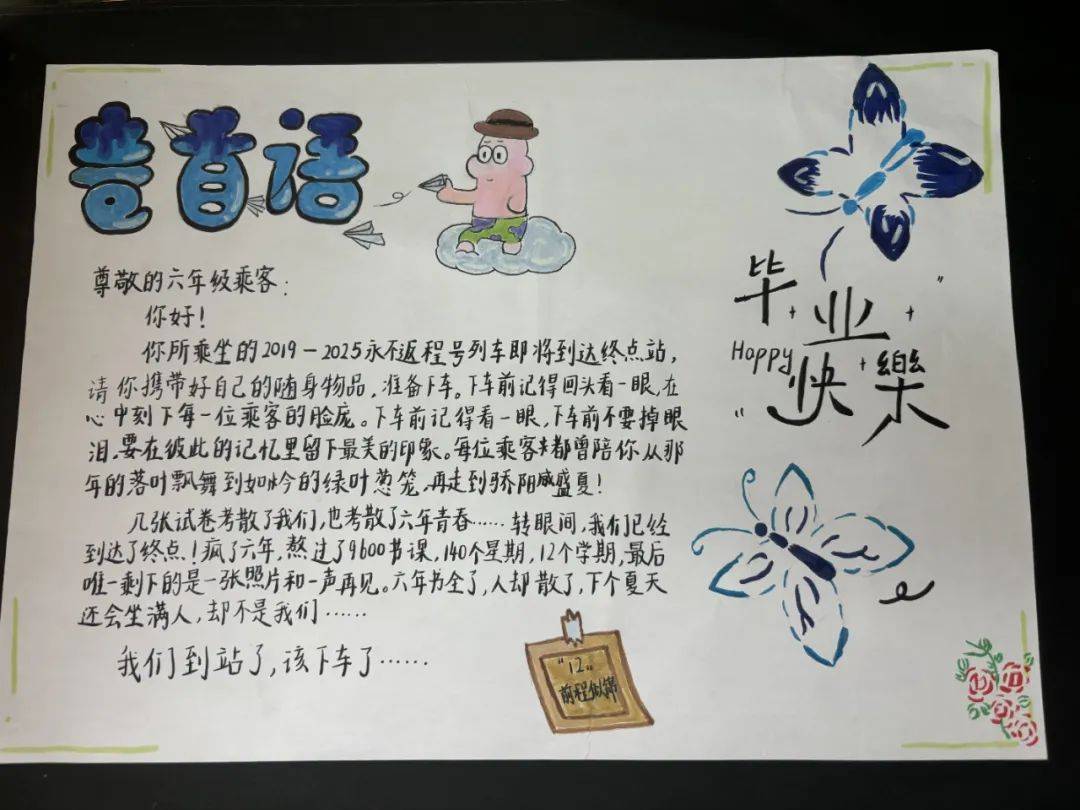 卷首语
尊敬的六年级乘客：
你好！
你所乘坐的2019－2025永不返程号列车即将到达终点站，
请你携带好自己的随身物品，准备下车。下车前记得回头看一眼，在
心中刻下每一位乘客的脸庞。下车前记得看一眼，下车前不要掉眼
泪，要在彼此的记忆里留下最美的印象。每位乘客都曾陪你从那
年的落叶飘舞到如今的绿叶葱笼，再走到骄阳盛夏！
几张试卷考散了我们，也考散了六年青春……转眼间，我们已经
到达了终点！疯了六年，熬过了9600节课，140个星期，12个学期，最后
唯一剩下的是一张照片和一声再见。六年书全了，人却散了，下个夏天
还会坐满人，却不是我们……
我们到站了，该下车了……
毕业
Happy
快樂
“12”
前程似锦